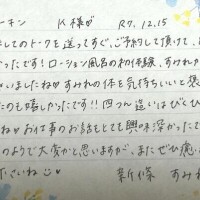 ーキン K様が R7.12.15
してのトークを送ってすぐ、ご予約して頂けて、
ったです!ローション風呂の初体験、すみれか
いましたね♡すみれの体を気持ちいいと褒
たのも嬉しかったです!!四つん這いはびくび
ね♡お仕事のお話もとても興味深かったで
のようで大変かと思いますが、またぜひ癒
ださいね
新條 すみれ